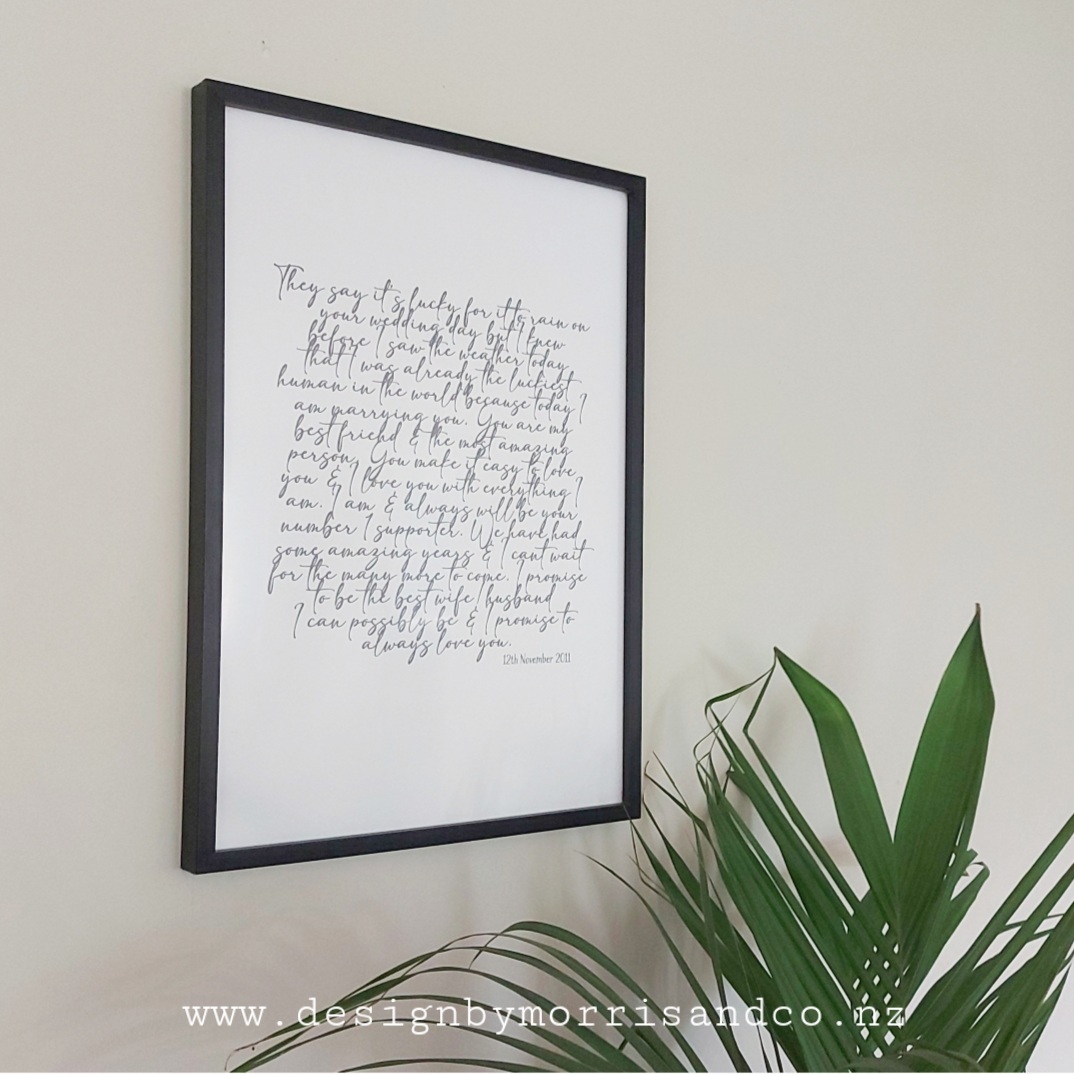 They say it's lucky for it to rain on
your wedding day but I knew
before I saw the weather today
that I was already the luckiest
human in the world because today I
am marrying you. You are my
best friend & the most amazing
person. You make it easy to love
you & I love you with everything I
am. I am & always will be your
number 1 supporter. We have had
some amazing years & I cant wait
for the many more to come. I promise
to be the best wife / husband
I can possibly be & I promise to
always love you.
12th November 2011
www.designbymorrisandco.nz